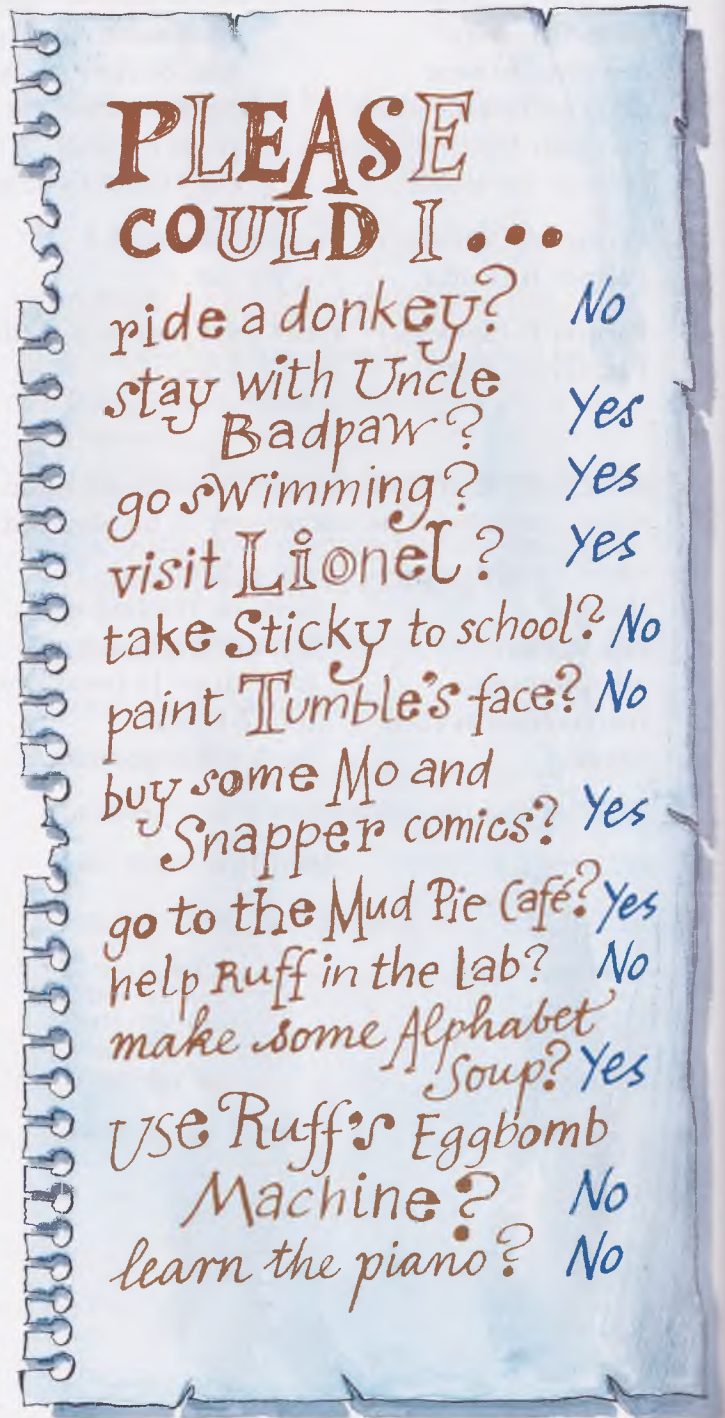 PLEASE
COULD I...
ride a donkey? No
stay with Uncle
Badpaw? Yes
go swimming? Yes
visit Lionel? Yes
take Sticky to school? No
paint Tumble's face? No
buy some Mo and
Snapper comics? Yes
go to the Mud Pie Café? Yes
help Ruff in the Lab? No
make some Alphabet
Soup? Yes
Use Ruff's Eggbomb
Machine? No
learn the piano? No